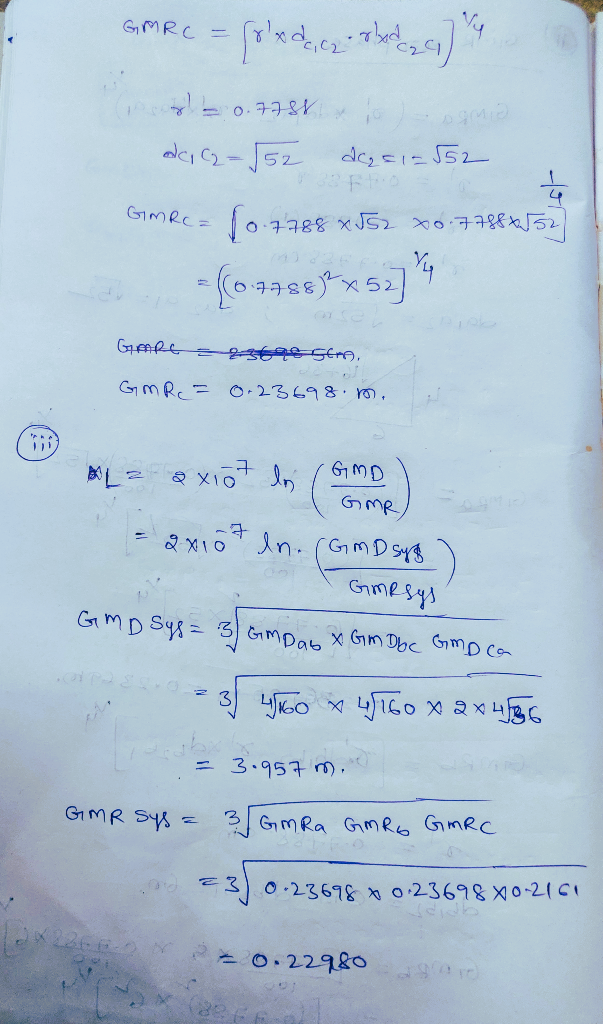 GMRC = [r' x dc1c2 · r' x dc2c1]^1/4
r' = 0.7788
dc1c2 = √52 dc2c1 = √52
GMRC = [0.7788 x √52 x 0.7788 x √52]^1/4
= [(0.7788)² x 52]^1/4
GMRC = 0.23698 m.
iii
L = 2 x 10^-7 ln (GMD / GMR)
= 2 x 10^-7 ln. (GMD sys / GMR sys)
GMD sys = 3√GMDab x GMDbc GMDca
= 3√4√160 x 4√160 x 2 x 4√36
= 3.957 m.
GMR sys = 3√GMRa GMRb GMRC
= 3√0.23698 x 0.23698 x 0.2161
= 0.22980